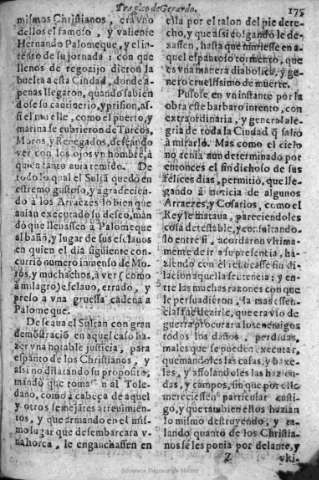 Tragico de Gerardo. 175
mismos Christianos, era vno
dellos el famoso, y valiente
Hernando Palomeque, y el in-
tento de su jornada: con que
llenos de regozijo dieron la
buelta a esta Ciudad, donde a-
penas llegaron, quando sabien
dose su cautiuerio, y prision, as-
si el muelle, como el puerto, y
marina se cubrieron de Turcos,
Moros, y Renegados, deseando
ver con los ojos vn hombre, à
quien tanto auia temido. De
todo lo qual el Sultã quedò en
estremo gustoso, y agradecien-
do à los Arraezes lo bien que
auian executado su deseo, man
dò que lleuassen à Palomeque
al baño, y lugar de sus esclauos
en quien el dia siguiente con-
currió numero inmenso de Mo-
ros, y muchachos, à ver (como
à milagro) esclauo, errado, y
preso a vna gruessa cadena a
Palomeque.
Deseaua el Sultan con gran
demostracion en aquel caso ha-
zer vna notable justicia, para
espanto de los Christianos, y
assi no dilatando su proposito,
mandó que al Tole-
dano, como à cabeça de aquel
y otros semejantes atreuimien-
tos, y que armando en el mis-
mo lugar que desembarcara v-
na horca, le enganchassen en
ella por el talon del pie dere-
cho, y que assi colgando le de-
xassen, hasta que muriesse en a-
quel espantoso tormento, que
es vna manera diabolica, y ge-
nero cruelissimo de muerte.
Pusose en vn instante por la
obra este barbaro intento, con
extraordinaria, y general ale-
gria de toda la Ciudad q̃ saliò
à mirarlo. Mas como el cielo
no tenia aun determinado por
entonces el fin dichoso de sus
felices dias, permitió, que lle-
gando à noticia de algunos
Arraezes, y Cosarios, como el
Rey le mataua, pareciendoles
cosa detestable, y consultando-
lo entre si, acordaron vltima-
mente de ir a su presencia, ha-
ziendo con el
dilacion aquella sentencia; y en-
tre las muchas razones con que
le persuadieron, la mas essen-
cial fue dezirle, que era vio de
guerra procurar a los enemigos
todos los daños, perdidas,
males que se pueden, y
quemandoles las casas, y baxe-
les, y assolandoles las hazien-
das, y campos, sin que por ello
mereciessen particular casti-
go, y que tambien ellos hazian
lo mismo destruyendo, y ta-
lando quanto de los Christia-
nos se les ponia por delante, y
Z vlti-